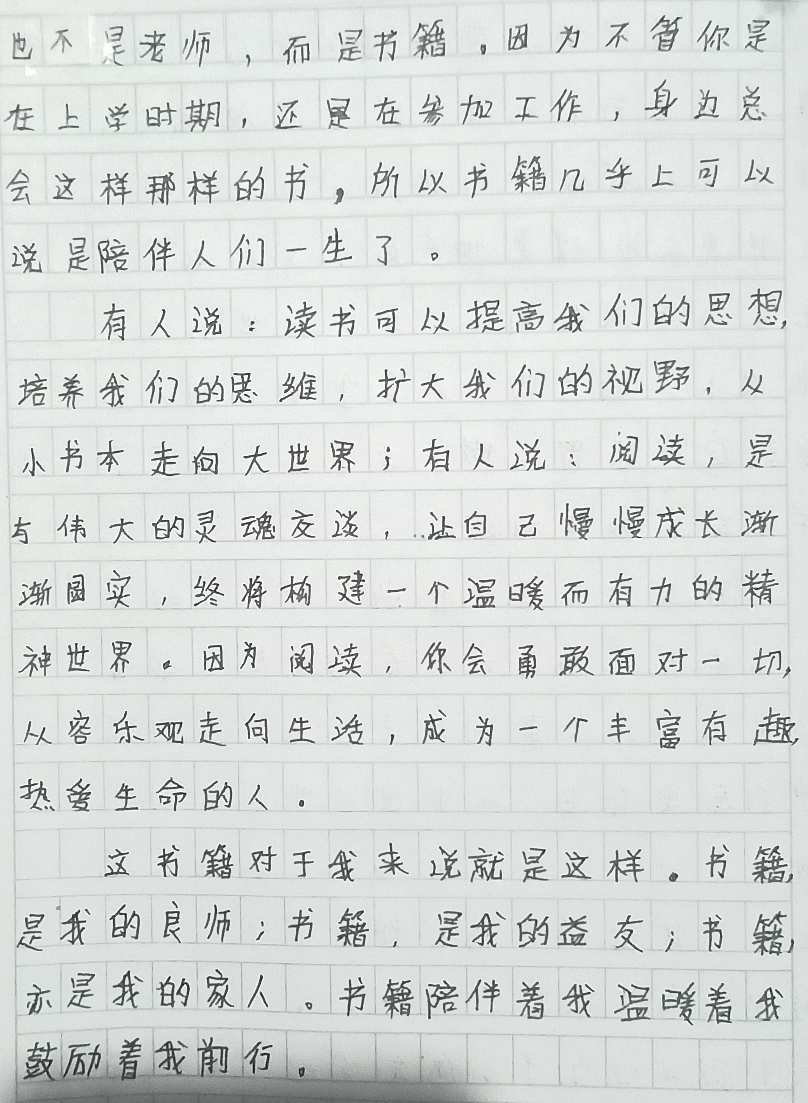 也不是老师，而是书籍。因为不管你是
在上学时期，还是在参加工作，身边总
会这样那样的书，所以书籍几乎上可以
说是陪伴人们一生了。
有人说：读书可以提高我们的思想，
培养我们的思维，扩大我们的视野，从
小书本走向大世界；有人说：阅读，是
与伟大的灵魂交谈，让自己慢慢成长渐
渐圆实，终将构建一个温暖而有力的精
神世界。因为阅读，你会勇敢面对一切，
从容乐观走向生活，成为一个丰富有趣，
热爱生命的人。
这书籍对于我来说就是这样。书籍，
是我的良师；书籍，是我的益友；书籍，
亦是我的家人。书籍陪伴着我温暖着我
鼓励着我前行。